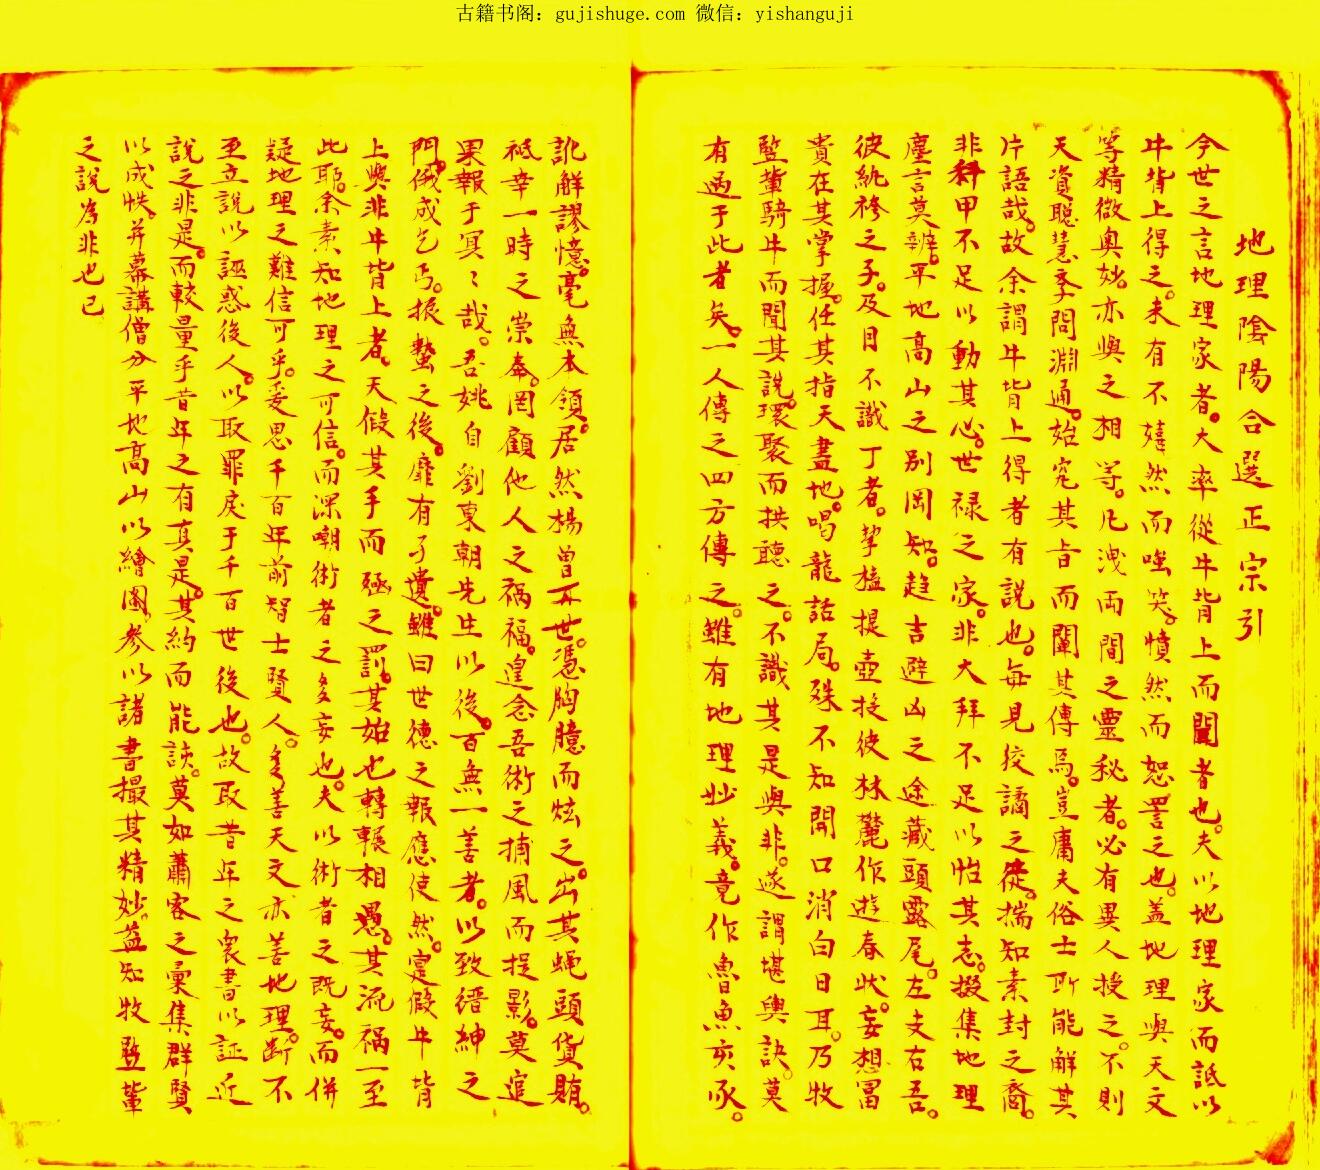 古籍书阁：gujishuge.com 微信：yishanguji
地理陰陽合選正宗引
今世之言地理家者。大率從牛背上而闡者也。夫以地理家而詆以
牛背上得之。未有不嘻然而嗤笑。憤然而怒詈之也。蓋地理與天文
等精微奥妙。亦與之相等。凡洩両間之靈秘者。必有異人授之。不則
天資聰慧季問淵通。始究其旨而闡其傳焉。豈庸夫俗士所能解其
片語哉。故余謂牛背上得者有說也。每見狡譎之徒。揣知素封之裔。
非科甲不足以動其心。世禄之家。非大拜不足以怡其志。掇集地理
塵言莫辨。平地高山之别岡知。趋吉避凶之途藏頭露尾。左支右吾。
彼紈袴之子。及目不識丁者。挈榼提壺投彼林麓作遊春状。妄想冨
貴在其掌握。任其指天畫地。喝龍話局。殊不知開口消白日耳。乃牧
竪輩騎牛而聞其說。環聚而拱聽之。不識其是與非。遂謂堪輿訣。莫
有過于此者矣。一人傳之四方傳之。雖有地理妙義。竟作魯魚亥豕。
訛解謬憶。毫無本領。居然楊曽再世。憑胸臆而炫之。出其蝇頭貨賄。
袛幸一時之崇奉。罔顧他人之禍福。遑念吾術之捕風而捉影。莫逭
果報于冥〻哉。吾姚自劉東朝先生以後。百無一善者。以致缙紳之
門。俄成乞丐。振蟄之後。靡有孑遺。雖曰世德之報應使然。寔假牛背
上與非牛背上者。天假其手而殛之罰。其始也轉輾相愚。其流禍一至
此耶。余素知地理之可信。而深嘲術者之多妄也。夫以術者之既妄。而併
疑地理之難信可乎。爰思千百年前智士賢人。多善天文亦善地理。断不
至立說以誣惑後人。以取罪戾于千百世後也。故取昔年之裒書以証近
說之非是。而較量乎昔年之有真是。其約而能該。莫如蕭客之彙集群賢
以成帙。并幕講僧分平地高山以繪圖参以諸書撮其精妙。益知牧竪輩
之說為非也已